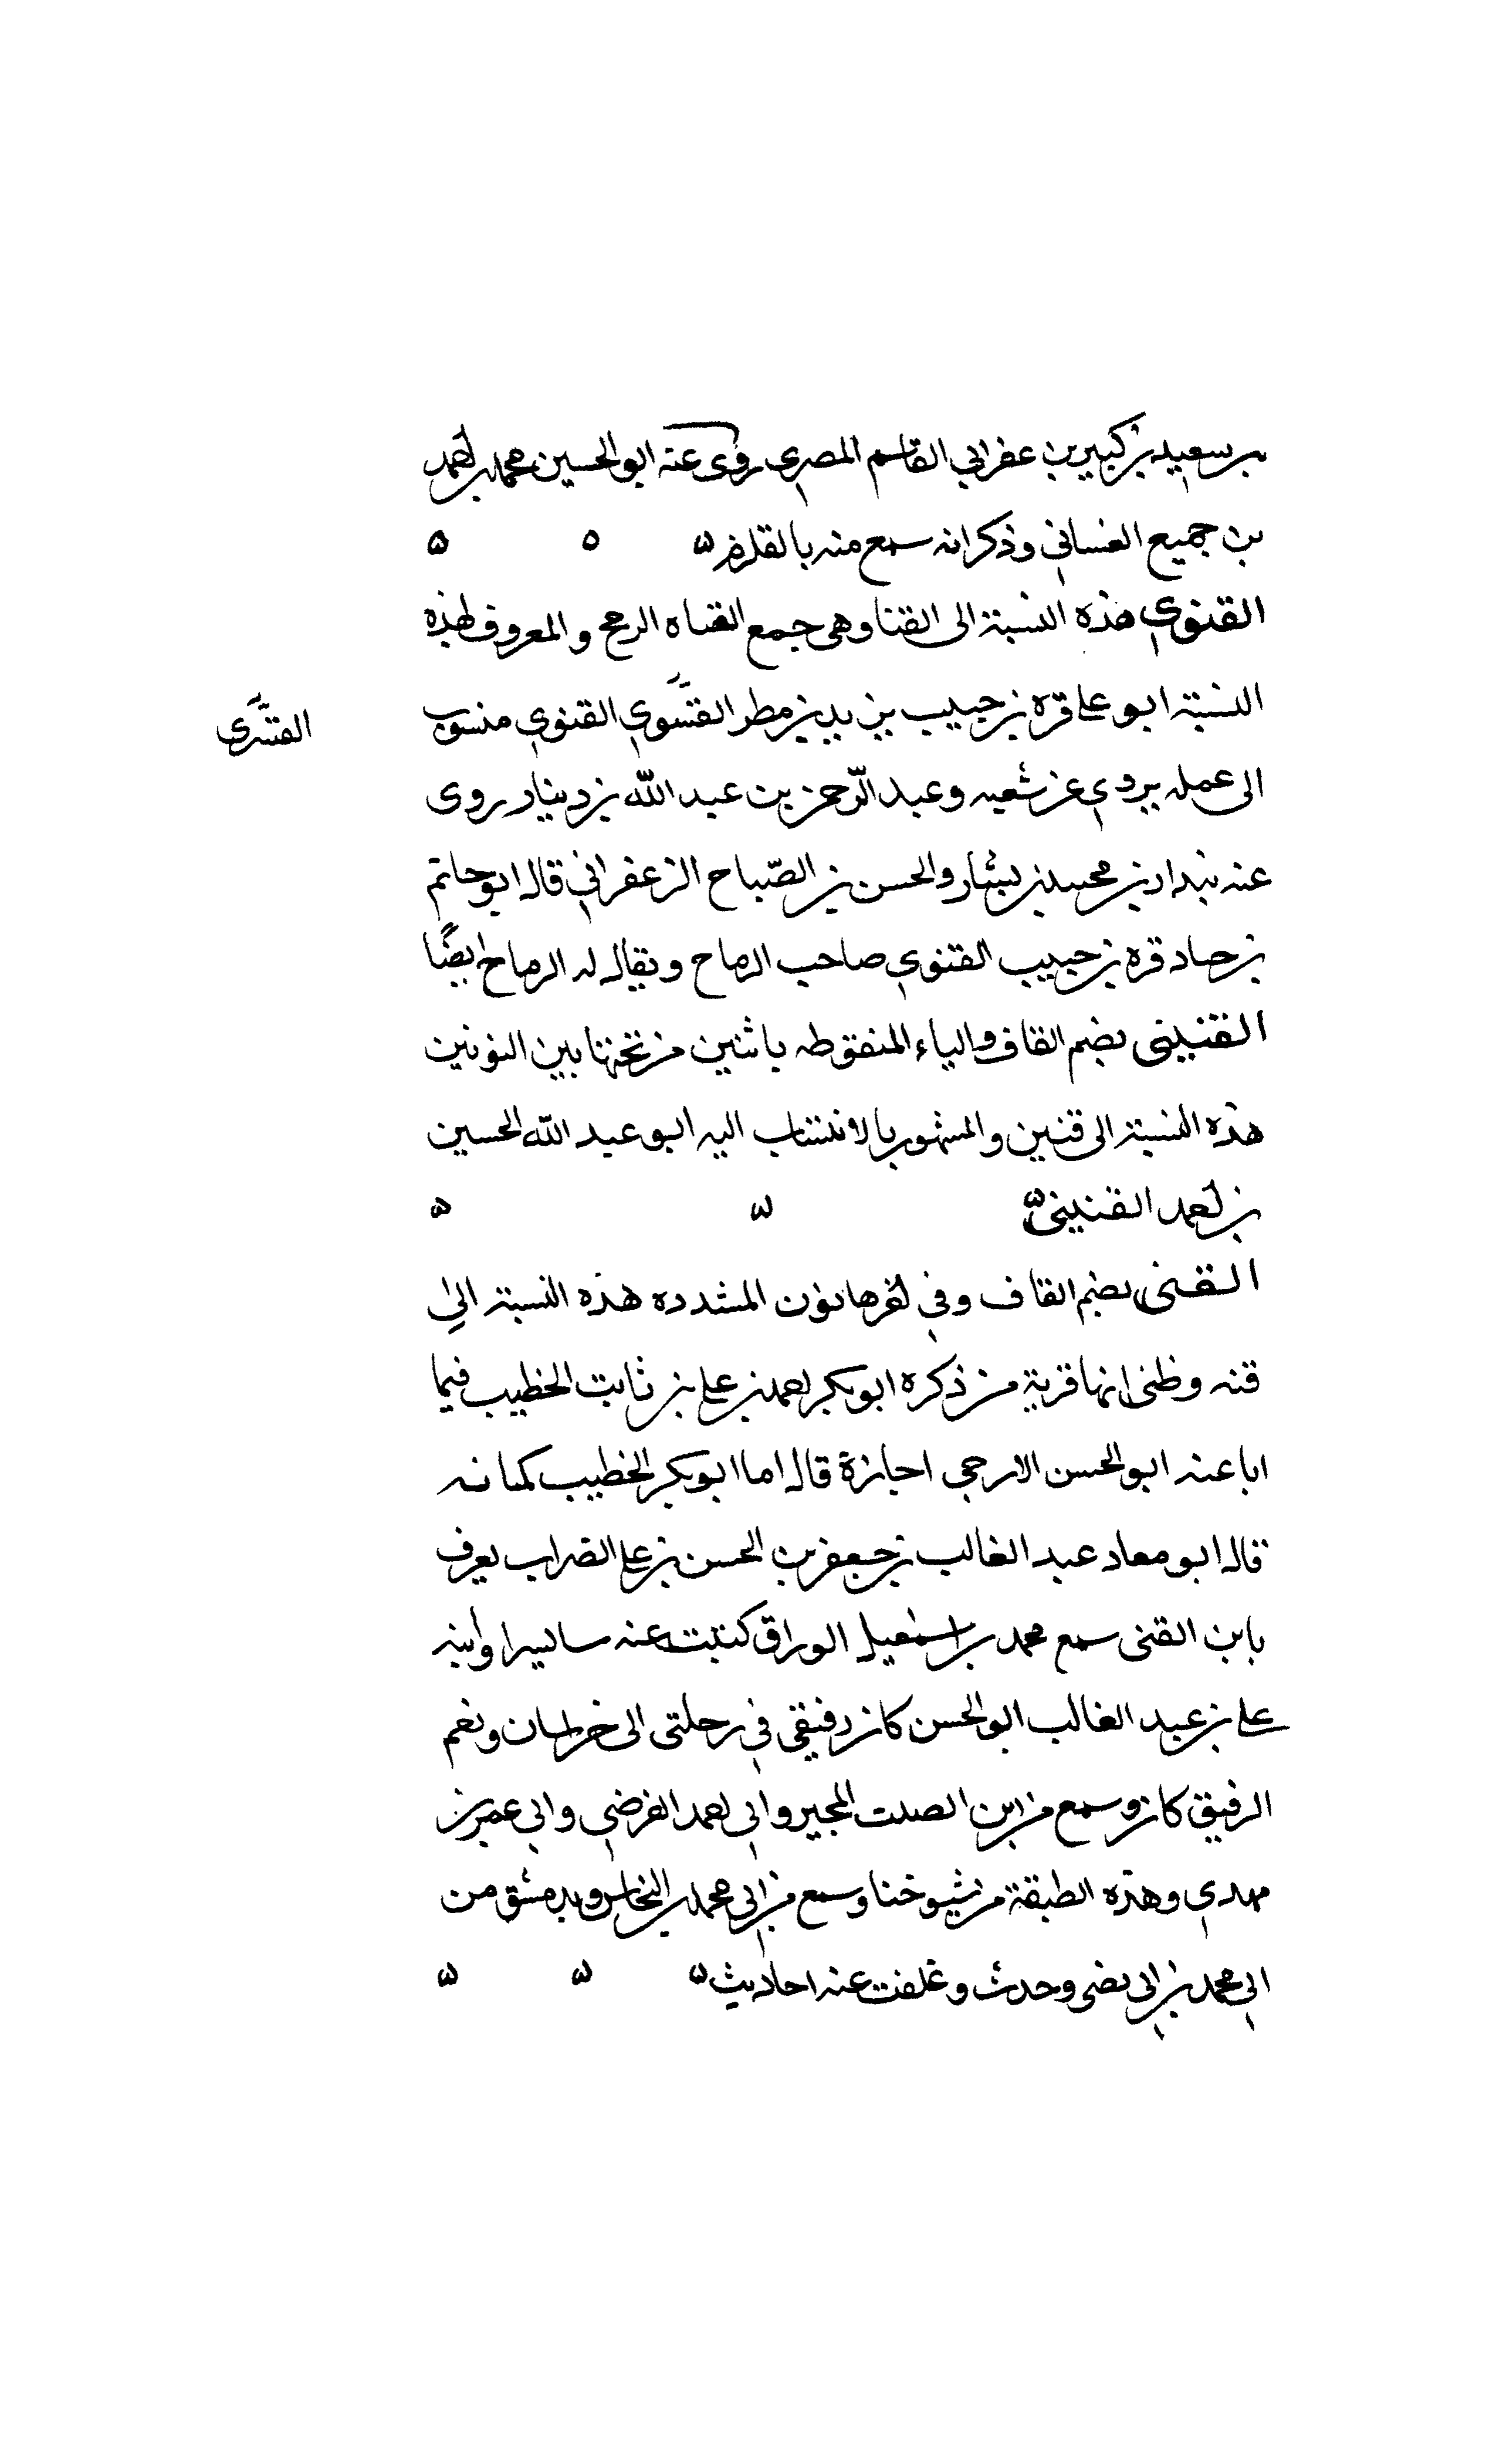 بن سعيد بن كبير بن عفر ابي القاسم المصري روى عنه ابو الحسين محمد بن احمد
بن جميع الغساني وذكر انه سمع منه بالقلزم ه ه ه
القنوي هذه النسبة الى القنا وهى جمع القناه الرمح والمعروف لهذه
النسبة ابو على قره بن حبيب بن يد بن مطر القشوي القنوي منسوب
القشرى
الى عمله يروي عن شعبه وعبد الرّحمن بن عبد الله بن دينار روى
عنه بندار بن محمد بن بشار والحسن بن الصّباح الزعفراني قال ابو حاتم
بن حباد قره بن حبيب القنوي صاحب الرماح ويقال له الرماح ايضًا
القنينى بضم القاف والياء المنقوطه باثنين من تحتها بين النونين
هذه النسبة الى قنين والمشهور بالانتساب اليه ابو عبد الله الحسين
بن احمد القنينى ه ه ه
القنى بضم القاف وفي اخرها نون المشدده هذه النسبة الى
قنه وظنى انها قرية من ذكره ابو بكر احمد بن على بن ثابت الخطيب فيما
ابا عنه ابو الحسن الازجي اجازة قال اما ابو بكر الخطيب كمانه
قال ابو معاد عبد الغالب بن جعفر بن الحسن بن على الضراب يعرف
بابن القنى سمع محمد بن اسمعيل الوراق كتبت عنه سا لسيرا وابنه
على بن عبد الغالب ابو الحسن كان رفيقي في رحلتى الى خراسان ونعم
الرفيق كان وسمع من ابن الصلت المجير وابي احمد الفرضي وابي عمر بن
مهدي وهذه الطبقة من شيوخنا وسمع من ابي محمد بن النحاس وبدمشق من
ابي محمد بن ابي نصر وحدث وعلقت عنه احاديث ه ه ه